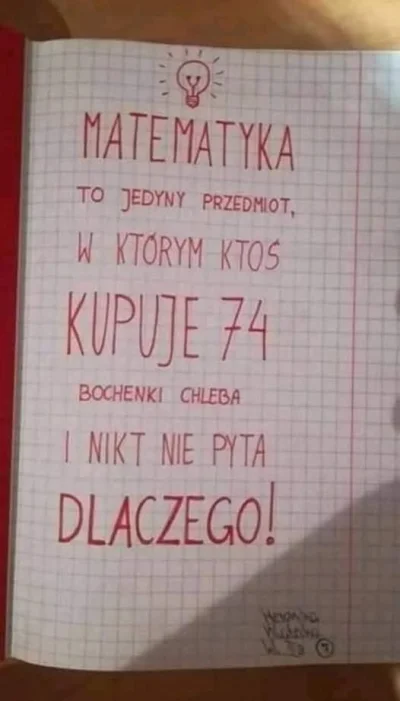 MATEMATYKA
TO JEDYNY PRZEDMIOT,
W KTÓRYM KTOŚ
KUPUJE 74
BOCHENKI CHLEBA
I NIKT NIE PYTA
DLACZEGO!